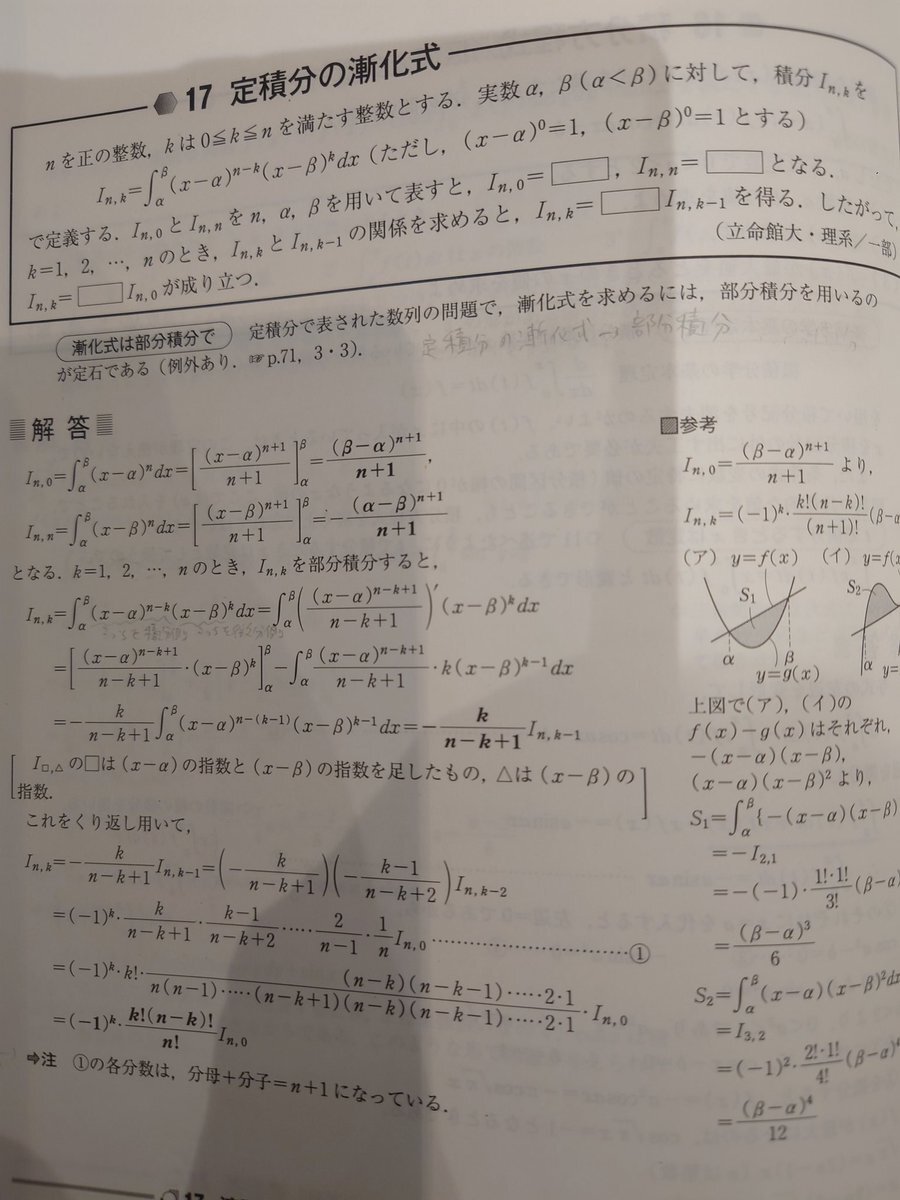 17 定積分の漸化式
nを正の整数,kは0≦k≦nを満たす整数とする.実数α,β(α<β)に対して,積分I_{n,k}を
I_{n,k}=∫_α^β(x-α)^{n-k}(x-β)^k dx(ただし,(x-α)^0=1,(x-β)^0=1とする)
で定義する.I_{n,0}とI_{n,n}をn,α,βを用いて表すと,I_{n,0}=□,I_{n,n}=□となる.
k=1,2,…,nのとき,I_{n,k}とI_{n,k-1}の関係を求めると,I_{n,k}=□I_{n,k-1}を得る.したがって,
I_{n,k}=□I_{n,0}が成り立つ.
(立命館大・理系/一部)
漸化式は部分積分で 定積分で表された数列の問題で,漸化式を求めるには,部分積分を用いるの
が定石である(例外あり.☞p.71,3・3).
定積分の漸化式→部分積分
解答
I_{n,0}=∫_α^β(x-α)^n dx=[(x-α)^{n+1}/(n+1)]_α^β=(β-α)^{n+1}/(n+1),
I_{n,n}=∫_α^β(x-β)^n dx=[(x-β)^{n+1}/(n+1)]_α^β=-(α-β)^{n+1}/(n+1)
となる.k=1,2,…,nのとき,I_{n,k}を部分積分すると,
I_{n,k}=∫_α^β(x-α)^{n-k}(x-β)^k dx=∫_α^β((x-α)^{n-k+1}/(n-k+1))′(x-β)^k dx
=[(x-α)^{n-k+1}/(n-k+1)・(x-β)^k]_α^β-∫_α^β(x-α)^{n-k+1}/(n-k+1)・k(x-β)^{k-1}dx
=-k/(n-k+1)∫_α^β(x-α)^{n-(k-1)}(x-β)^{k-1}dx=-k/(n-k+1)I_{n,k-1}
[I_{□,△}の□は(x-α)の指数と(x-β)の指数を足したもの,△は(x-β)の
指数.]
これをくり返し用いて,
I_{n,k}=-k/(n-k+1)I_{n,k-1}=(-k/(n-k+1))(-(k-1)/(n-k+2))I_{n,k-2}
=(-1)^k・k/(n-k+1)・(k-1)/(n-k+2)・・・・・2/(n-1)・1/n I_{n,0} ……………………①
=(-1)^k・k!・(n-k)(n-k-1)・・・・・2・1/(n(n-1)・・・・・(n-k+1)(n-k)(n-k-1)・・・・・2・1)・I_{n,0}
=(-1)^k・k!(n-k)!/n! I_{n,0}
⇨注 ①の各分数は,分母+分子=n+1になっている.
参考
I_{n,0}=(β-α)^{n+1}/(n+1)より,
I_{n,k}=(-1)^k・k!(n-k)!/(n+1)!(β-α
(ア) y=f(x) (イ) y=f(x
S_1
S_2
α β α
y=g(x) y=
上図で(ア),(イ)の
f(x)-g(x)はそれぞれ,
-(x-α)(x-β),
(x-α)(x-β)^2より,
S_1=∫_α^β{-(x-α)(x-β)
=-I_{2,1}
=-(-1)・1!・1!/3!(β-α)
=(β-α)^3/6
S_2=∫_α^β(x-α)(x-β)^2dx
=I_{3,2}
=(-1)^2・2!・1!/4!(β-α)^4
=(β-α)^4/12